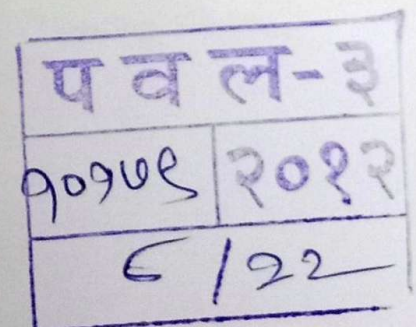 प व ल-३
१०१७९ २०१२
६/२२